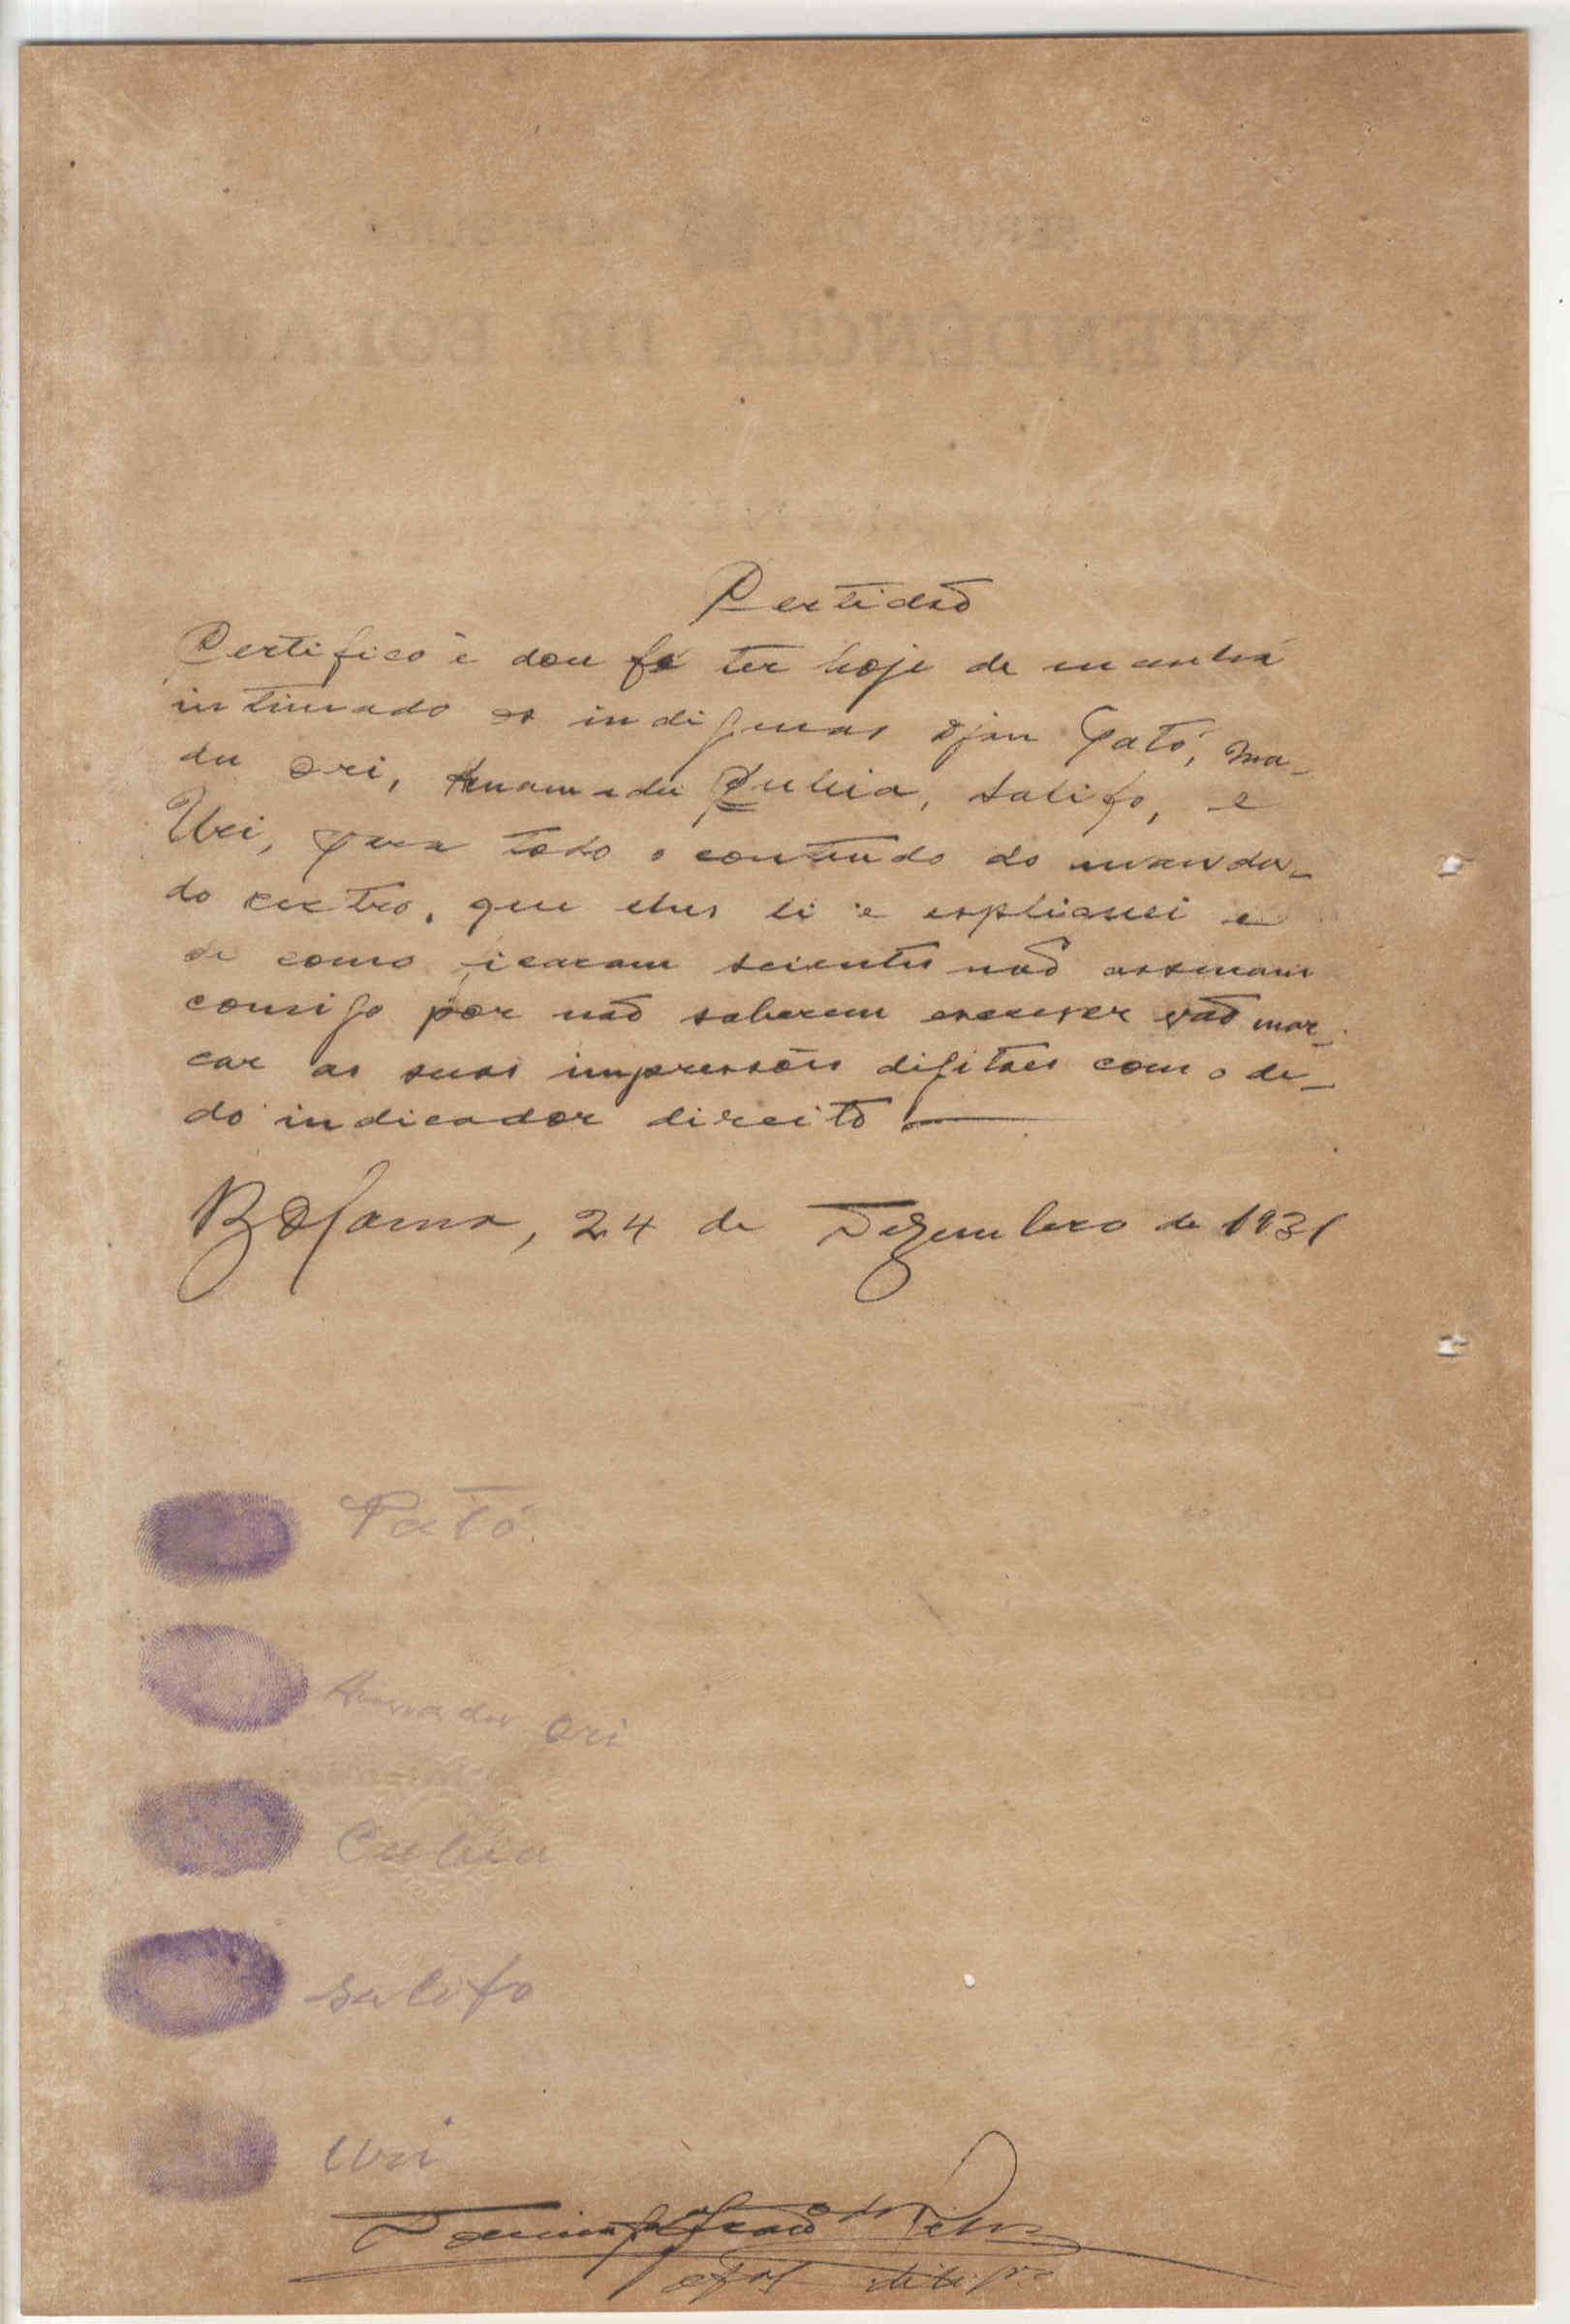 Certidão
Certifico e dou fé ter hoje de manhã
intimado os indigenas Djan Pató, Ma-
du Ori, Amamadu Cubia, Salifo, e
Uri, para todo o contendo do manda-
do rectro, que lhes li e expliquei e
de como icaram scientes não assinam
comigo por não saberem escrever vão mar-
car as suas impressões digitaes com o de-
do indicador direito.
Bolama, 24 de Dezembro de 1931
Pató.
Amadu Ori
Cubia
Salifo
Uri